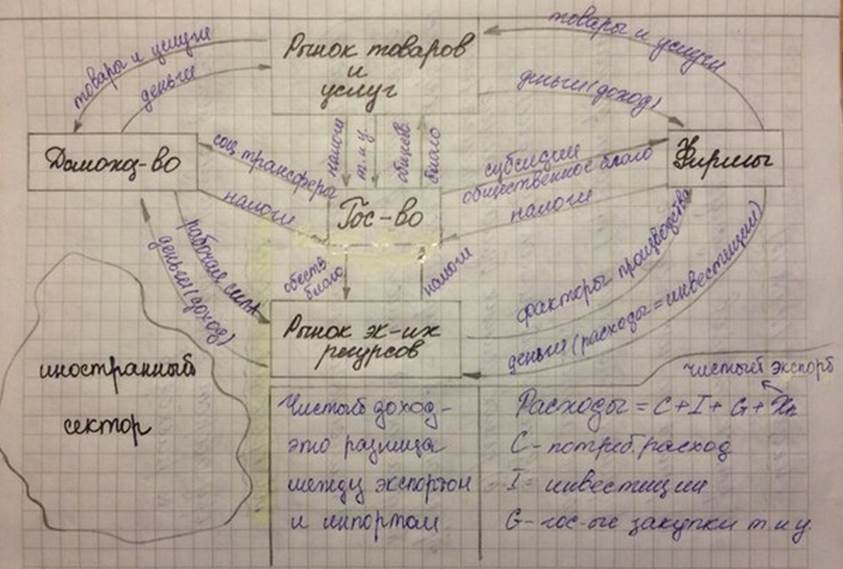 товары и услуги
деньги
Рынок товаров
и
услуг
товары и услуги
деньги (доход)
Домохоз-во
соц. трансферы
налоги
налоги
т. и у.
обществ.
благо
Гос-во
субсидии
общественное благо
налоги
Фирмы
рабочая сила
деньги (доход)
обеств
благо
налоги
факторы производства
деньги (расходы = инвестиции)
Рынок эк-их
ресурсов
иностранный
сектор
Чистый доход-
это разница
между экспортом
и импортом
чистый экспорт
Расходы = C + I + G + Xn
C - потреб. расход
I - инвестиции
G - гос-ые закупки т и у.